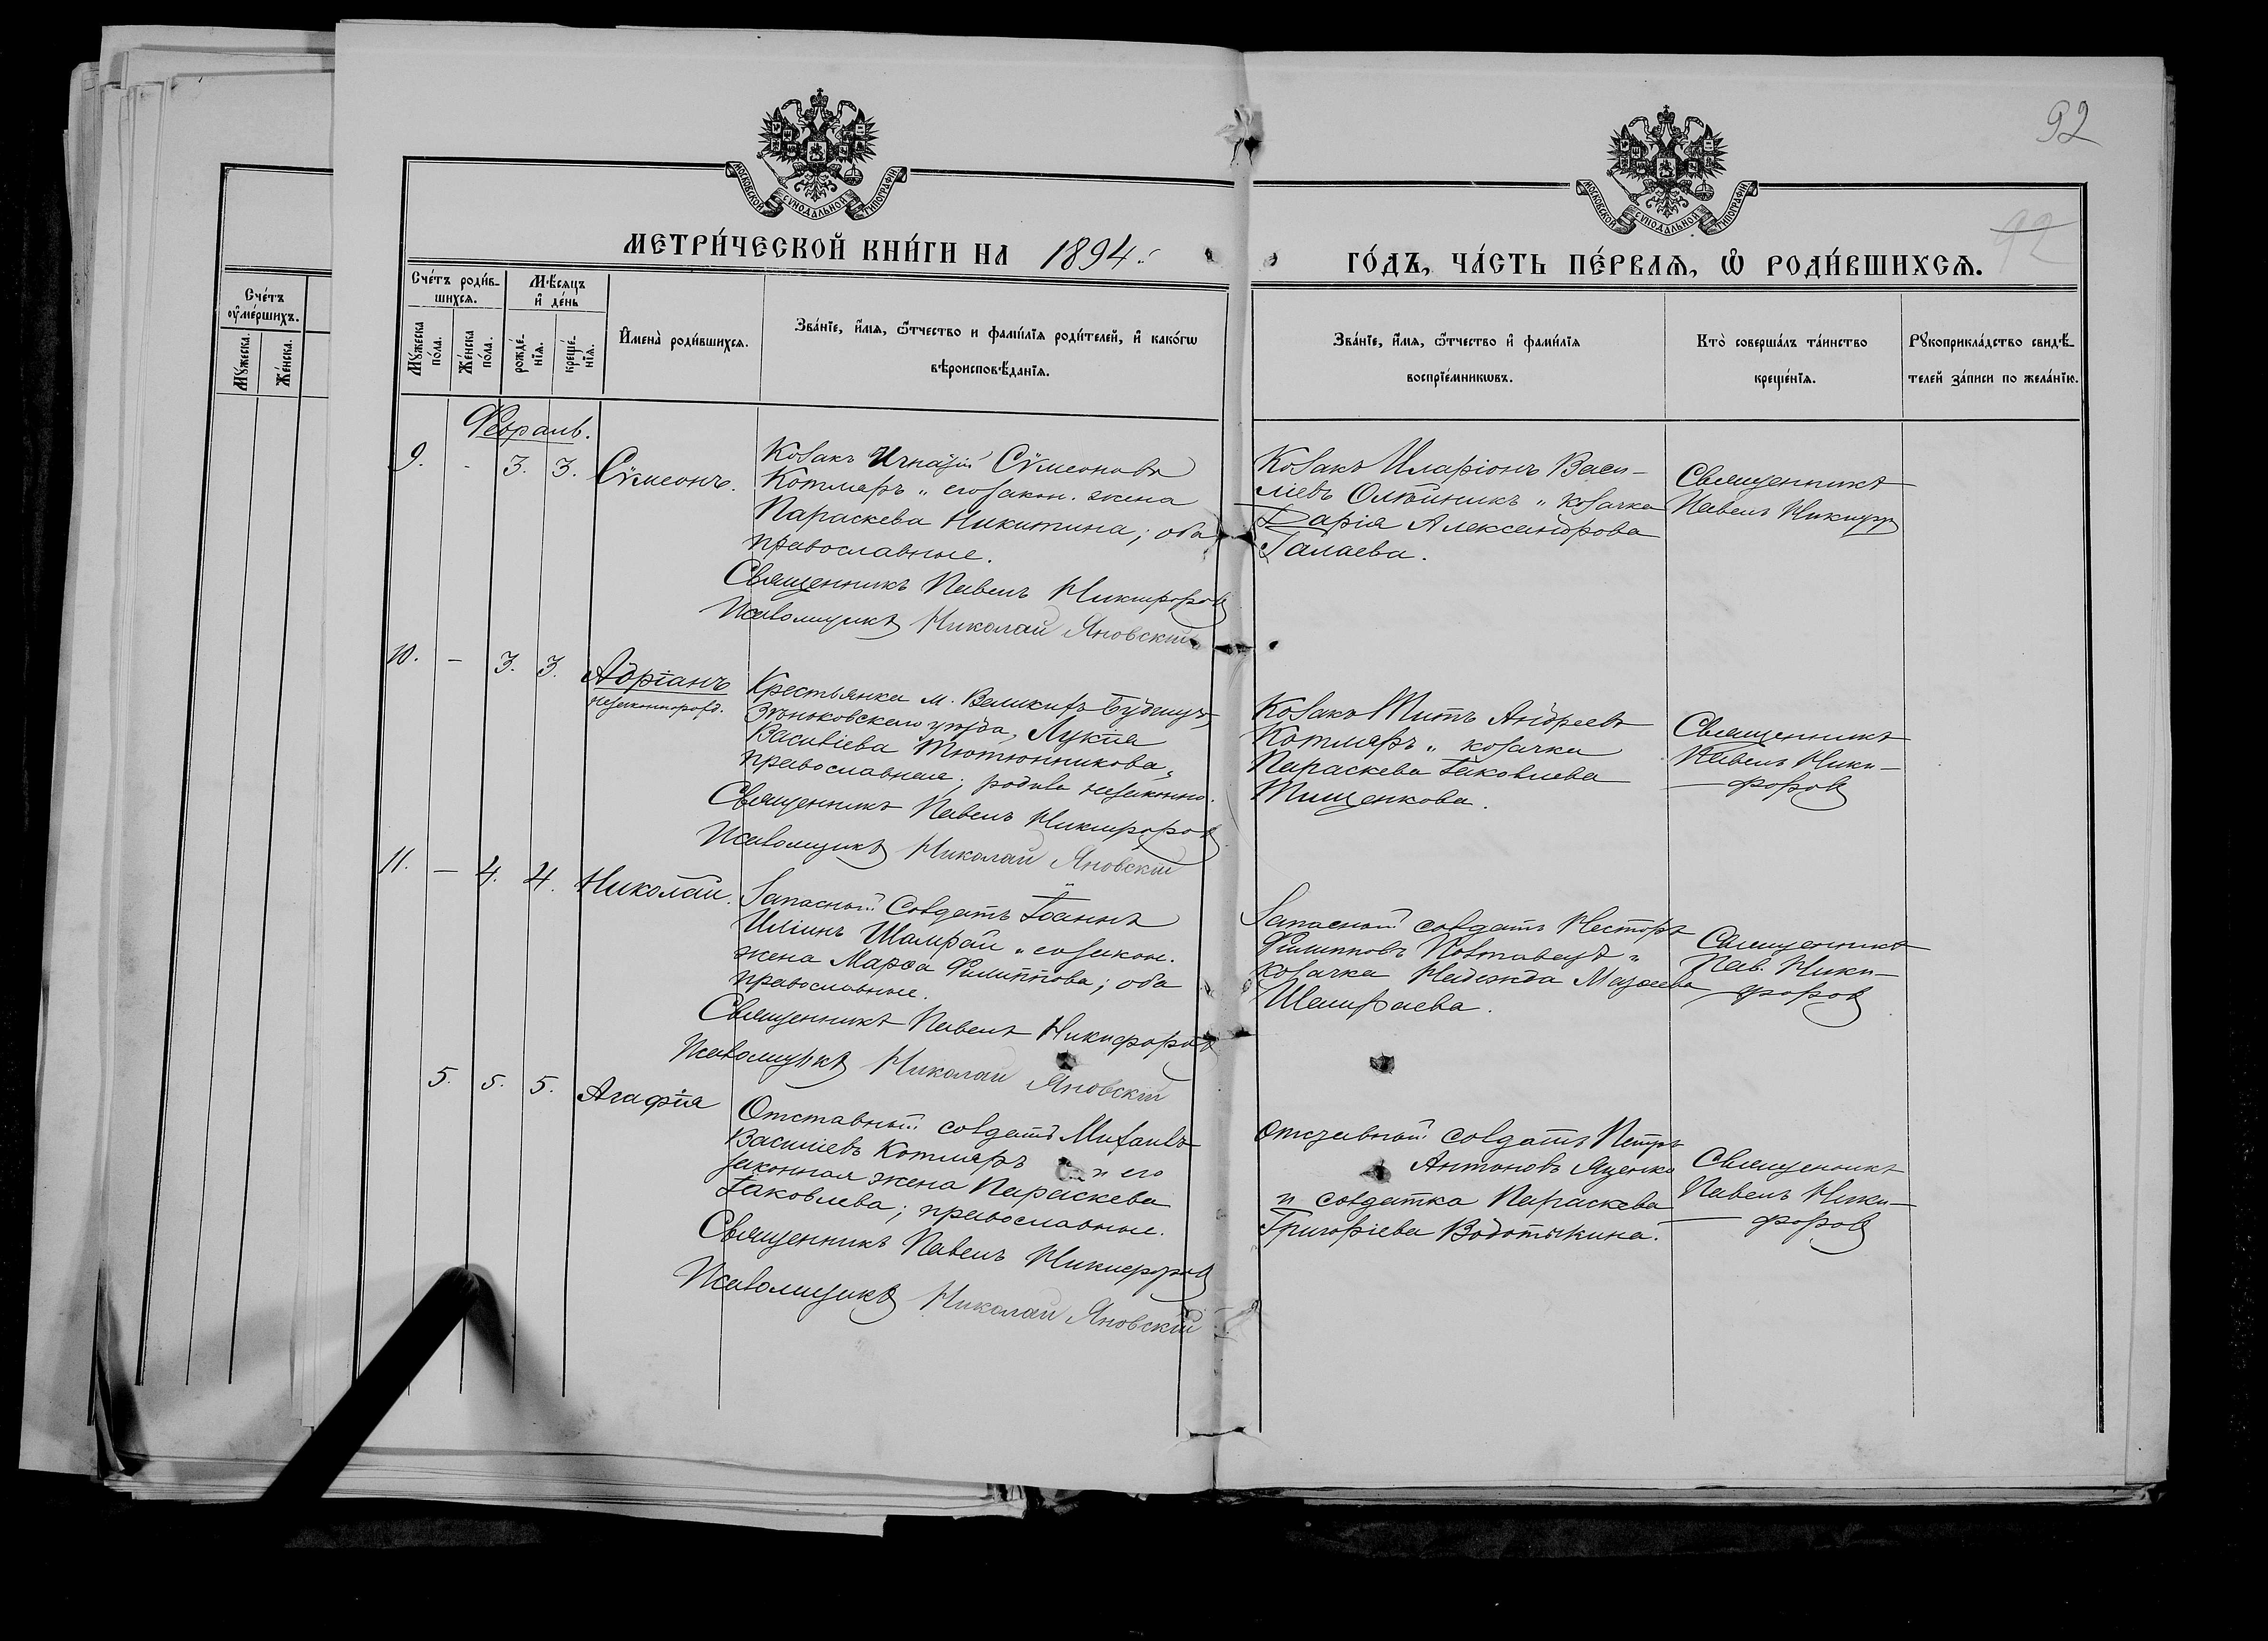 92
92
МОСКОВСКОЙ СѴНОДАЛЬНОЙ ТИПОГРАФІИ
МОСКОВСКОЙ СѴНОДАЛЬНОЙ ТИПОГРАФІИ
МЕТРИ́ЧЕСКОЙ КНИ́ГИ НА 1894.
ГО́ДЪ, ЧА́СТЬ ПЕ́РВАѦ, Ѡ҆ РОДИ́ВШИХСѦ.
Сче́тъ
оу҆ме́ршихъ.
Мꙋ́жеска.
Же́нска.
Сче́тъ роди́в-
шихсѧ.
Мꙋ́жеска
по́ла.
Же́нска
по́ла.
Мѣ́сѧцъ
и҆ де́нь
рожде́-
нїѧ.
креще́-
нїѧ.
И҆мена̀ роди́вшихсѧ.
Зва́нїе, и҆́мѧ, ѻ҆́тчество и фами́лїѧ роди́телей, и҆ како́гѡ
вѣроисповѣ́данїѧ.
Зва́нїе, и҆́мѧ, ѻ҆́тчество и҆ фами́лїѧ
воспрїе́мникѡвъ.
Кто̀ соверша́лъ та́инство
креще́нїѧ.
Рꙋкоприкла́дство свидѣ́-
телей за́писи по жела́нїю.
Февраль.
9. - 3. 3. Сѵмеонъ.
Козакъ Игнатій Сѵмеоновъ
Котляръ и его закон. жена
Параскева Никитина; оба
православные.
Священникъ Павелъ Никифоровъ
Псаломщикъ Николай Яновскій
Козакъ Иларіонъ Васи-
ліевъ Олѣйникъ и козачка
Дарія Александрова
Галаева.
Священникъ
Павелъ Никиф
10. - 3. 3. Адріанъ
незаконнорожд.
Крестьянка м. Великихъ Будищъ
Зѣньковскаго уѣзда, Лукія
Василіева Тютюнникова,
православная; родила незаконно.
Священникъ Павелъ Никифоровъ
Псаломщикъ Николай Яновскій
Козакъ Титъ Андреевъ
Котляръ и козачка
Параскева Іаковлева
Тищенкова.
Священникъ
Павелъ Ники-
форовъ
11. - 4. 4. Николай.
Запасный Солдатъ Іоаннъ
Иліинъ Шамрай и его закон.
жена Марѳа Филиппова; оба
православные.
Священникъ Павелъ Никифоровъ
Псаломщикъ Николай Яновскій
Запасный солдатъ Несторъ
Филипповъ Полтавецъ и
козачка Надежда
Шамраева.
Священникъ
Пав. Ники-
форовъ
5. 5. 5. Агафія
Отставный солдатъ Михаилъ
Василіевъ Котляръ и его
законная жена Параскева
Іаковлева; православные.
Священникъ Павелъ Никифоровъ
Псаломщикъ Николай Яновскій
Отставный солдатъ Петръ
Антоновъ Яценко
и солдатка Параскева
Григоріева
Священникъ
Павелъ Ники-
форовъ